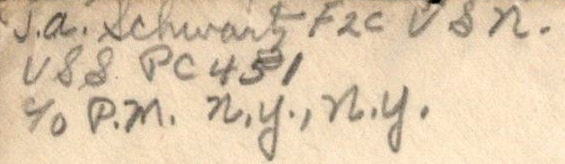 J.A. Schwartz F2C USN.
USS PC 451
c/o P.M. N.Y., N.Y.